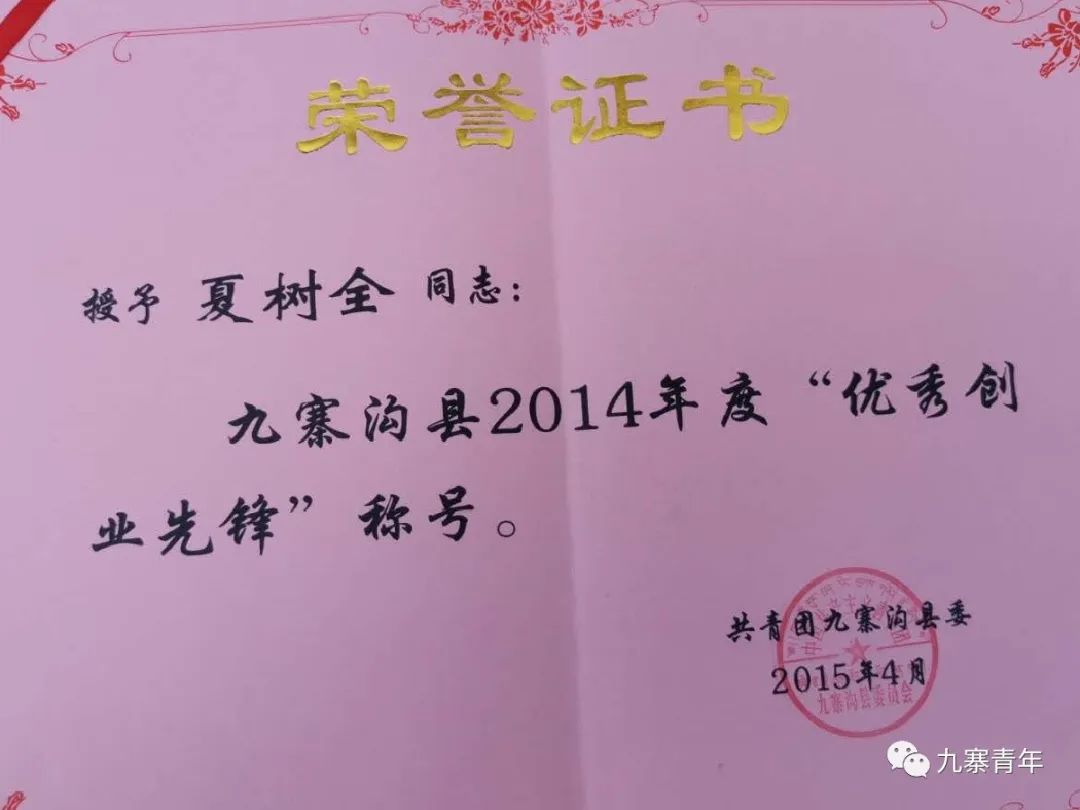 荣誉证书
授予 夏树全 同志：
九寨沟县2014年度“优秀创
业先锋”称号。
共青团九寨沟县委
2015年4月
九寨沟县委员会
九寨青年